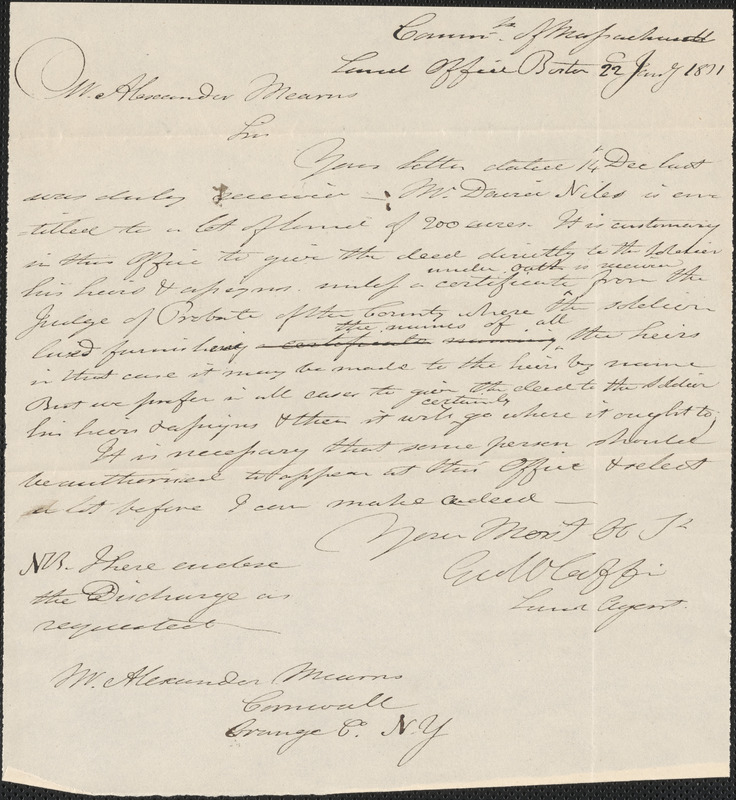 Commth. of Massachusetts
Land Office Boston 22 Jany 18
Mr. Alexander Mearns
Sir
Your letter dated 14 Dec last
was duly received — Mr. David Niles is en-
titled to a lot of land of 200 acres. It is customary
in this Office to give the deed directly to the Soldier
his heirs & assigns. unless a certificate from the
under oath is received
Judge of Probate of the County where the soldier
lived furnishing a certificate naming the heirs
the names of all
in that case it may be made to the heirs by name
But we prefer in all cases to give the deed to the Soldier
his heirs & assigns & then it will go where it ought to,
certainly
It is necessary that some person should
be authorised to appear at this Office & select
a lot before I can make a deed —
Your Most Ob St
Geo W Coffin
Land Agent.
NB. I here enclose
the Discharge as
requested
Mr. Alexander Mearns
Cornwall
Orange C. N.Y